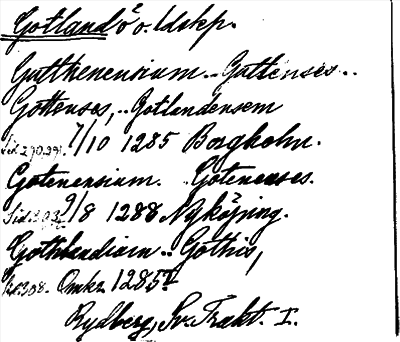 Gotland ö o. ldskp.
Guthenensium.. Guttenses..
Guttenses, .. Gotlandensem
Sid. 290.291. 7/10 1285 Borgholm.
Gotenensium. Gotenenses.
Sid. 303. 9/8 1288 Nyköping.
Gothlandiam .. Gothis,
Sid. 308. Omkr 1285
Rydberg, Sv. Trakt. I.